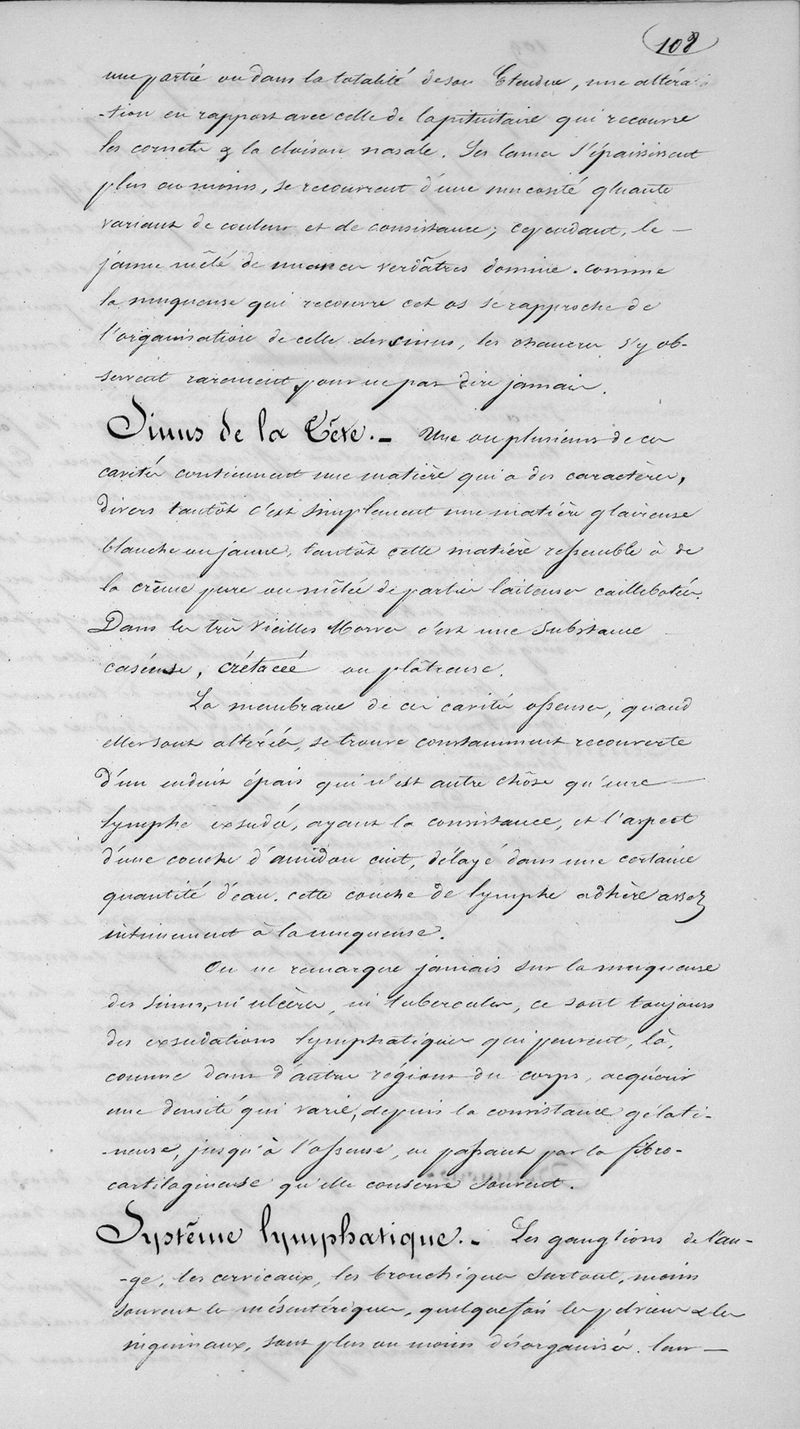 108
une partie ou dans la totalité de son Etendue, une altéra-
-tion en rapport avec celle de la pituitaire qui recouvre
les cornets & la cloison nasale. Ses lames s'épaississent
plus ou moins, se recouvrent d'une mucosité gluante
variant de couleur et de consistance; cependant, le —
jaune mêlé de nuances verdâtres domine. comme
la muqueuse qui recouvre cet os se rapproche de
l'organisation de celle des sinus, les chancres s'y ob-
servent rarement, pour ne pas dire jamais.
Sinus de la Tête. — Une ou plusieurs de ces
cavités contiennent une matière qui a des caractères,
divers tantôt c'est simplement une matière glaireuse
blanche ou jaune, tantôt cette matière ressemble à de
la crême pure ou mêlée de parties laiteuses caillebotées.
Dans les très vieilles Morves c'est une substance
caséeuse, crétacée ou plâtreuse.
La membrane de ces cavités osseuses, quand
elles sont altérées, se trouve constamment recouverte
d'un enduit épais qui n'est autre chôse qu'une —
lymphe exsudée, ayant la consistance, et l'aspect
d'une couche d'amidon cuit, délayé dans une certaine
quantité d'eau. cette couche de lymphe adhère assez
intimement à la muqueuse.
On ne remarque jamais sur la muqueuse
des sinus, ni ulcères, ni tubercules, ce sont toujours
des exsudations lymphatiques qui peuvent, là,
comme dans d'autres régions du corps, acquérir
une densité qui varie, depuis la consistance gélati-
-neuse, jusqu'à l'osseuse, en passant par la fibro-
cartilagineuse qu'elle conserve souvent.
Système lymphatique. — Les ganglions de l'au-
-ge, les cervicaux, les bronchiques surtout, moins
souvent les mésentériques, quelquefois les pelviens & les
inguinaux, sont plus ou moins désorganisés. leur —